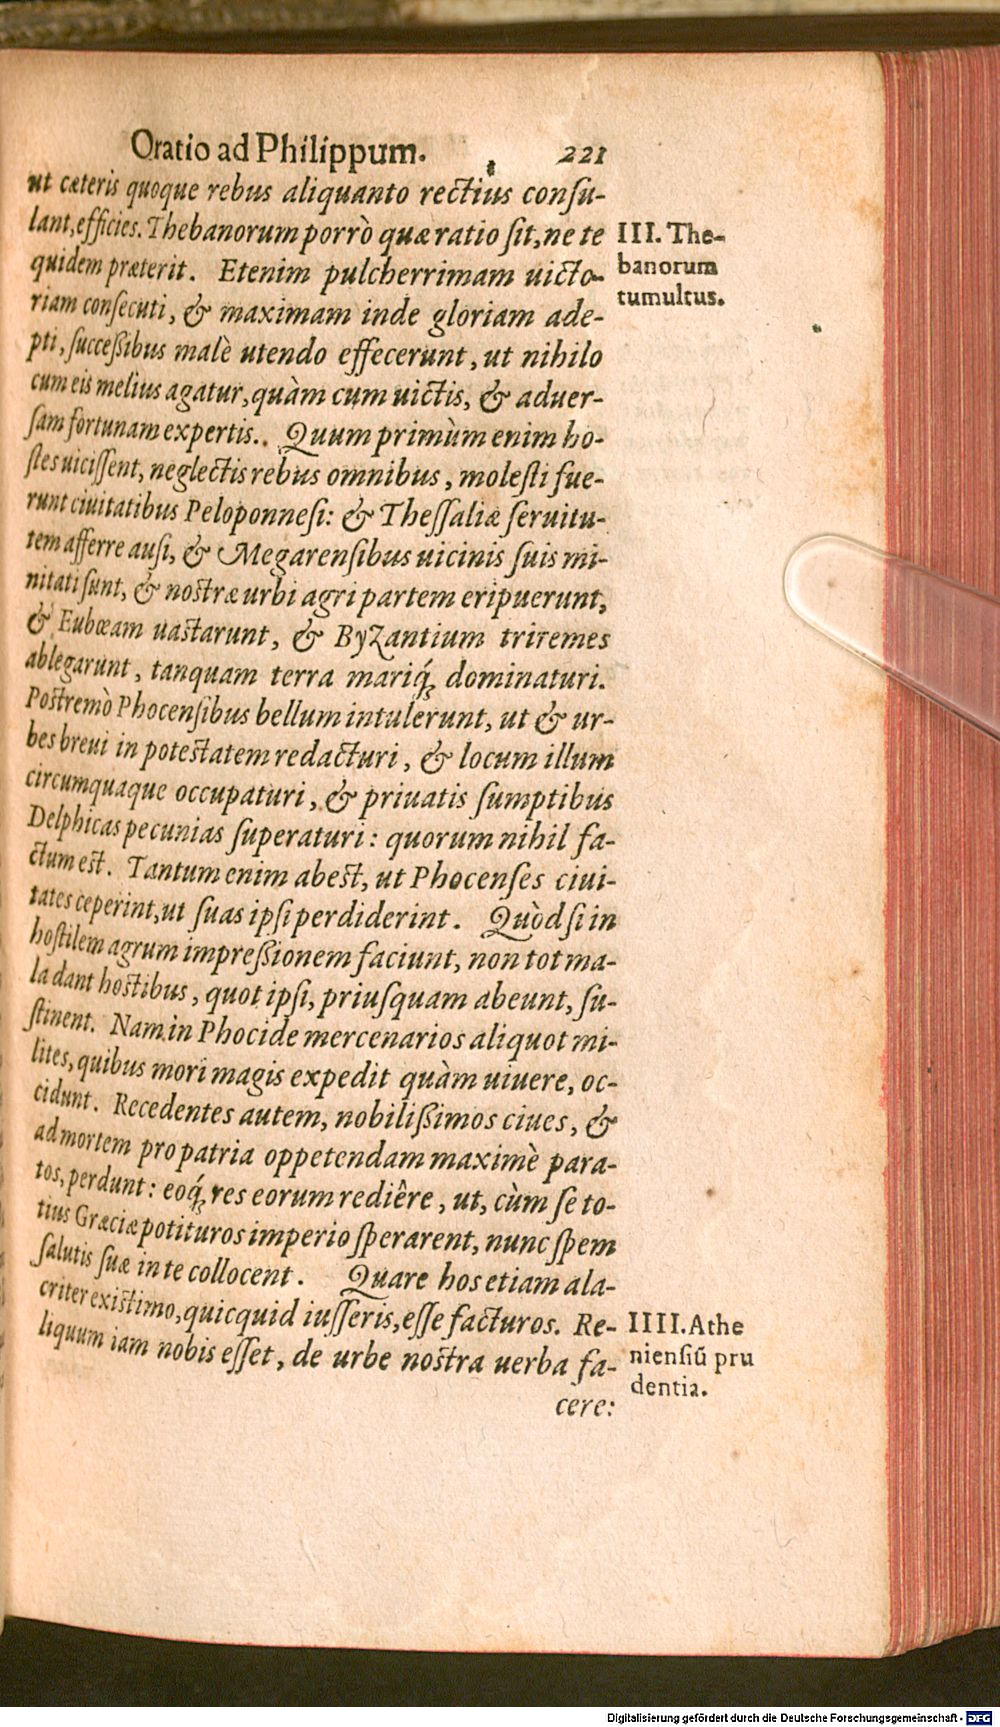 Oratio ad Philippum. 221
ut cæteris quoque rebus aliquanto rectius consu-
lant, efficies. Thebanorum porrò quæ ratio sit, ne te
quidem præterit. Etenim pulcherrimam uicto-
riam consecuti, & maximam inde gloriam ade-
pti, successibus malè utendo effecerunt, ut nihilo
cum eis melius agatur, quàm cum uictis, & aduer-
sam fortunam expertis. Quum primùm enim ho-
stes uicissent, neglectis rebus omnibus, molesti fue-
runt ciuitatibus Peloponnesi: & Thessaliæ seruitu-
tem afferre ausi, & Megarensibus uicinis suis mi-
nitati sunt, & nostræ urbi agri partem eripuerunt,
& Eubœam uastarunt, & Byzantium triremes
ablegarunt, tanquam terra mariq́; dominaturi.
Postremò Phocensibus bellum intulerunt, ut & ur-
bes breui in potestatem redacturi, & locum illum
circumquaque occupaturi, & priuatis sumptibus
Delphicas pecunias superaturi: quorum nihil fa-
ctum est. Tantum enim abest, ut Phocenses ciui-
tates ceperint, ut suas ipsi perdiderint. Quòd si in
hostilem agrum impressionem faciunt, non tot ma-
la dant hostibus, quot ipsi, priusquam abeunt, su-
stinent. Nam in Phocide mercenarios aliquot mi-
lites, quibus mori magis expedit quàm uiuere, oc-
cidunt. Recedentes autem, nobilissimos ciues, &
ad mortem pro patria oppetendam maximè para-
tos, perdunt: eoq́; res eorum rediêre, ut, cùm se to-
tius Græciæ potituros imperio sperarent, nunc spem
salutis suæ in te collocent. Quare hos etiam ala-
criter existimo, quicquid iusseris, esse facturos. Re-
liquum iam nobis esset, de urbe nostra uerba fa-
cere:
III. The-
banorum
tumultus.
IIII. Athe
niensiũ pru
dentia.
Digitalisierung gefördert durch die Deutsche Forschungsgemeinschaft - DFG